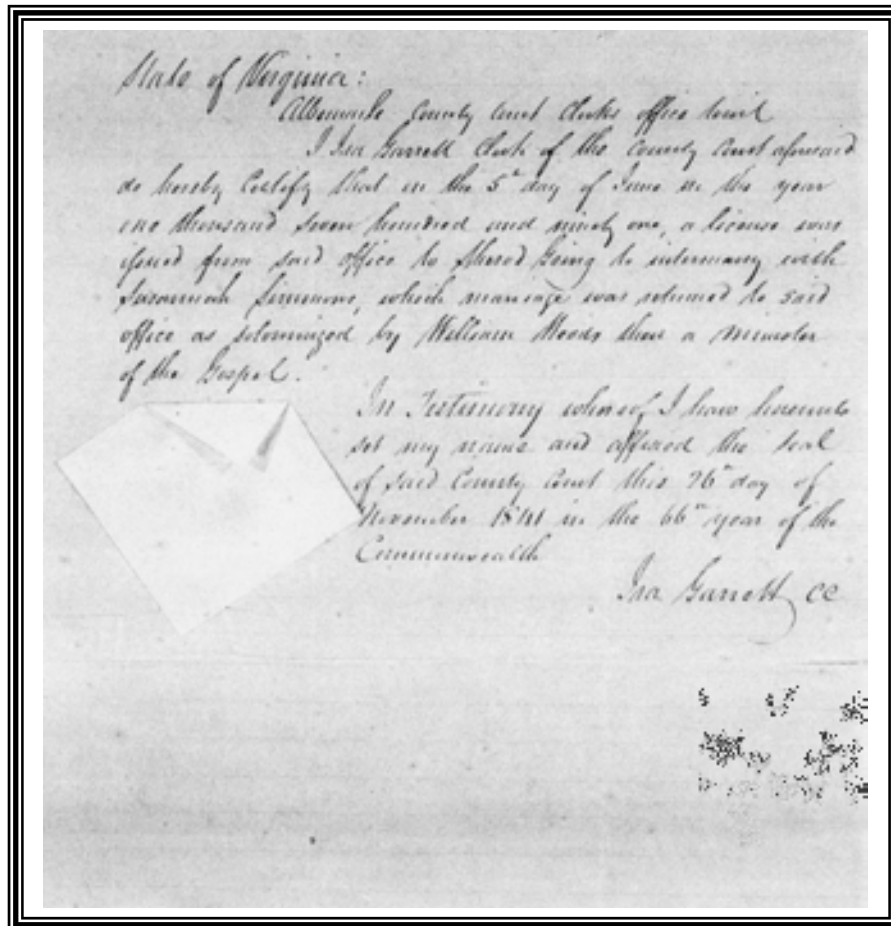 State of Virginia:
Albemarle County Court Clerks office towit
I Ira Garrett Clerk of the County Court aforesaid
do hereby Certify that in the 5th day of June in the year
one thousand seven hundred and ninety one, a license was
issued from said office to Sherod Going to intermarry with
Susannah Simmons, which marriage was returned to said
office as solemnized by William Woods then a minister
of the Gospel.
In Testimony whereof I have hereunto
set my name and affixed the seal
of said County Court this 26th day of
November 1841 in the 66th year of the
Commonwealth
Ira Garrett CC